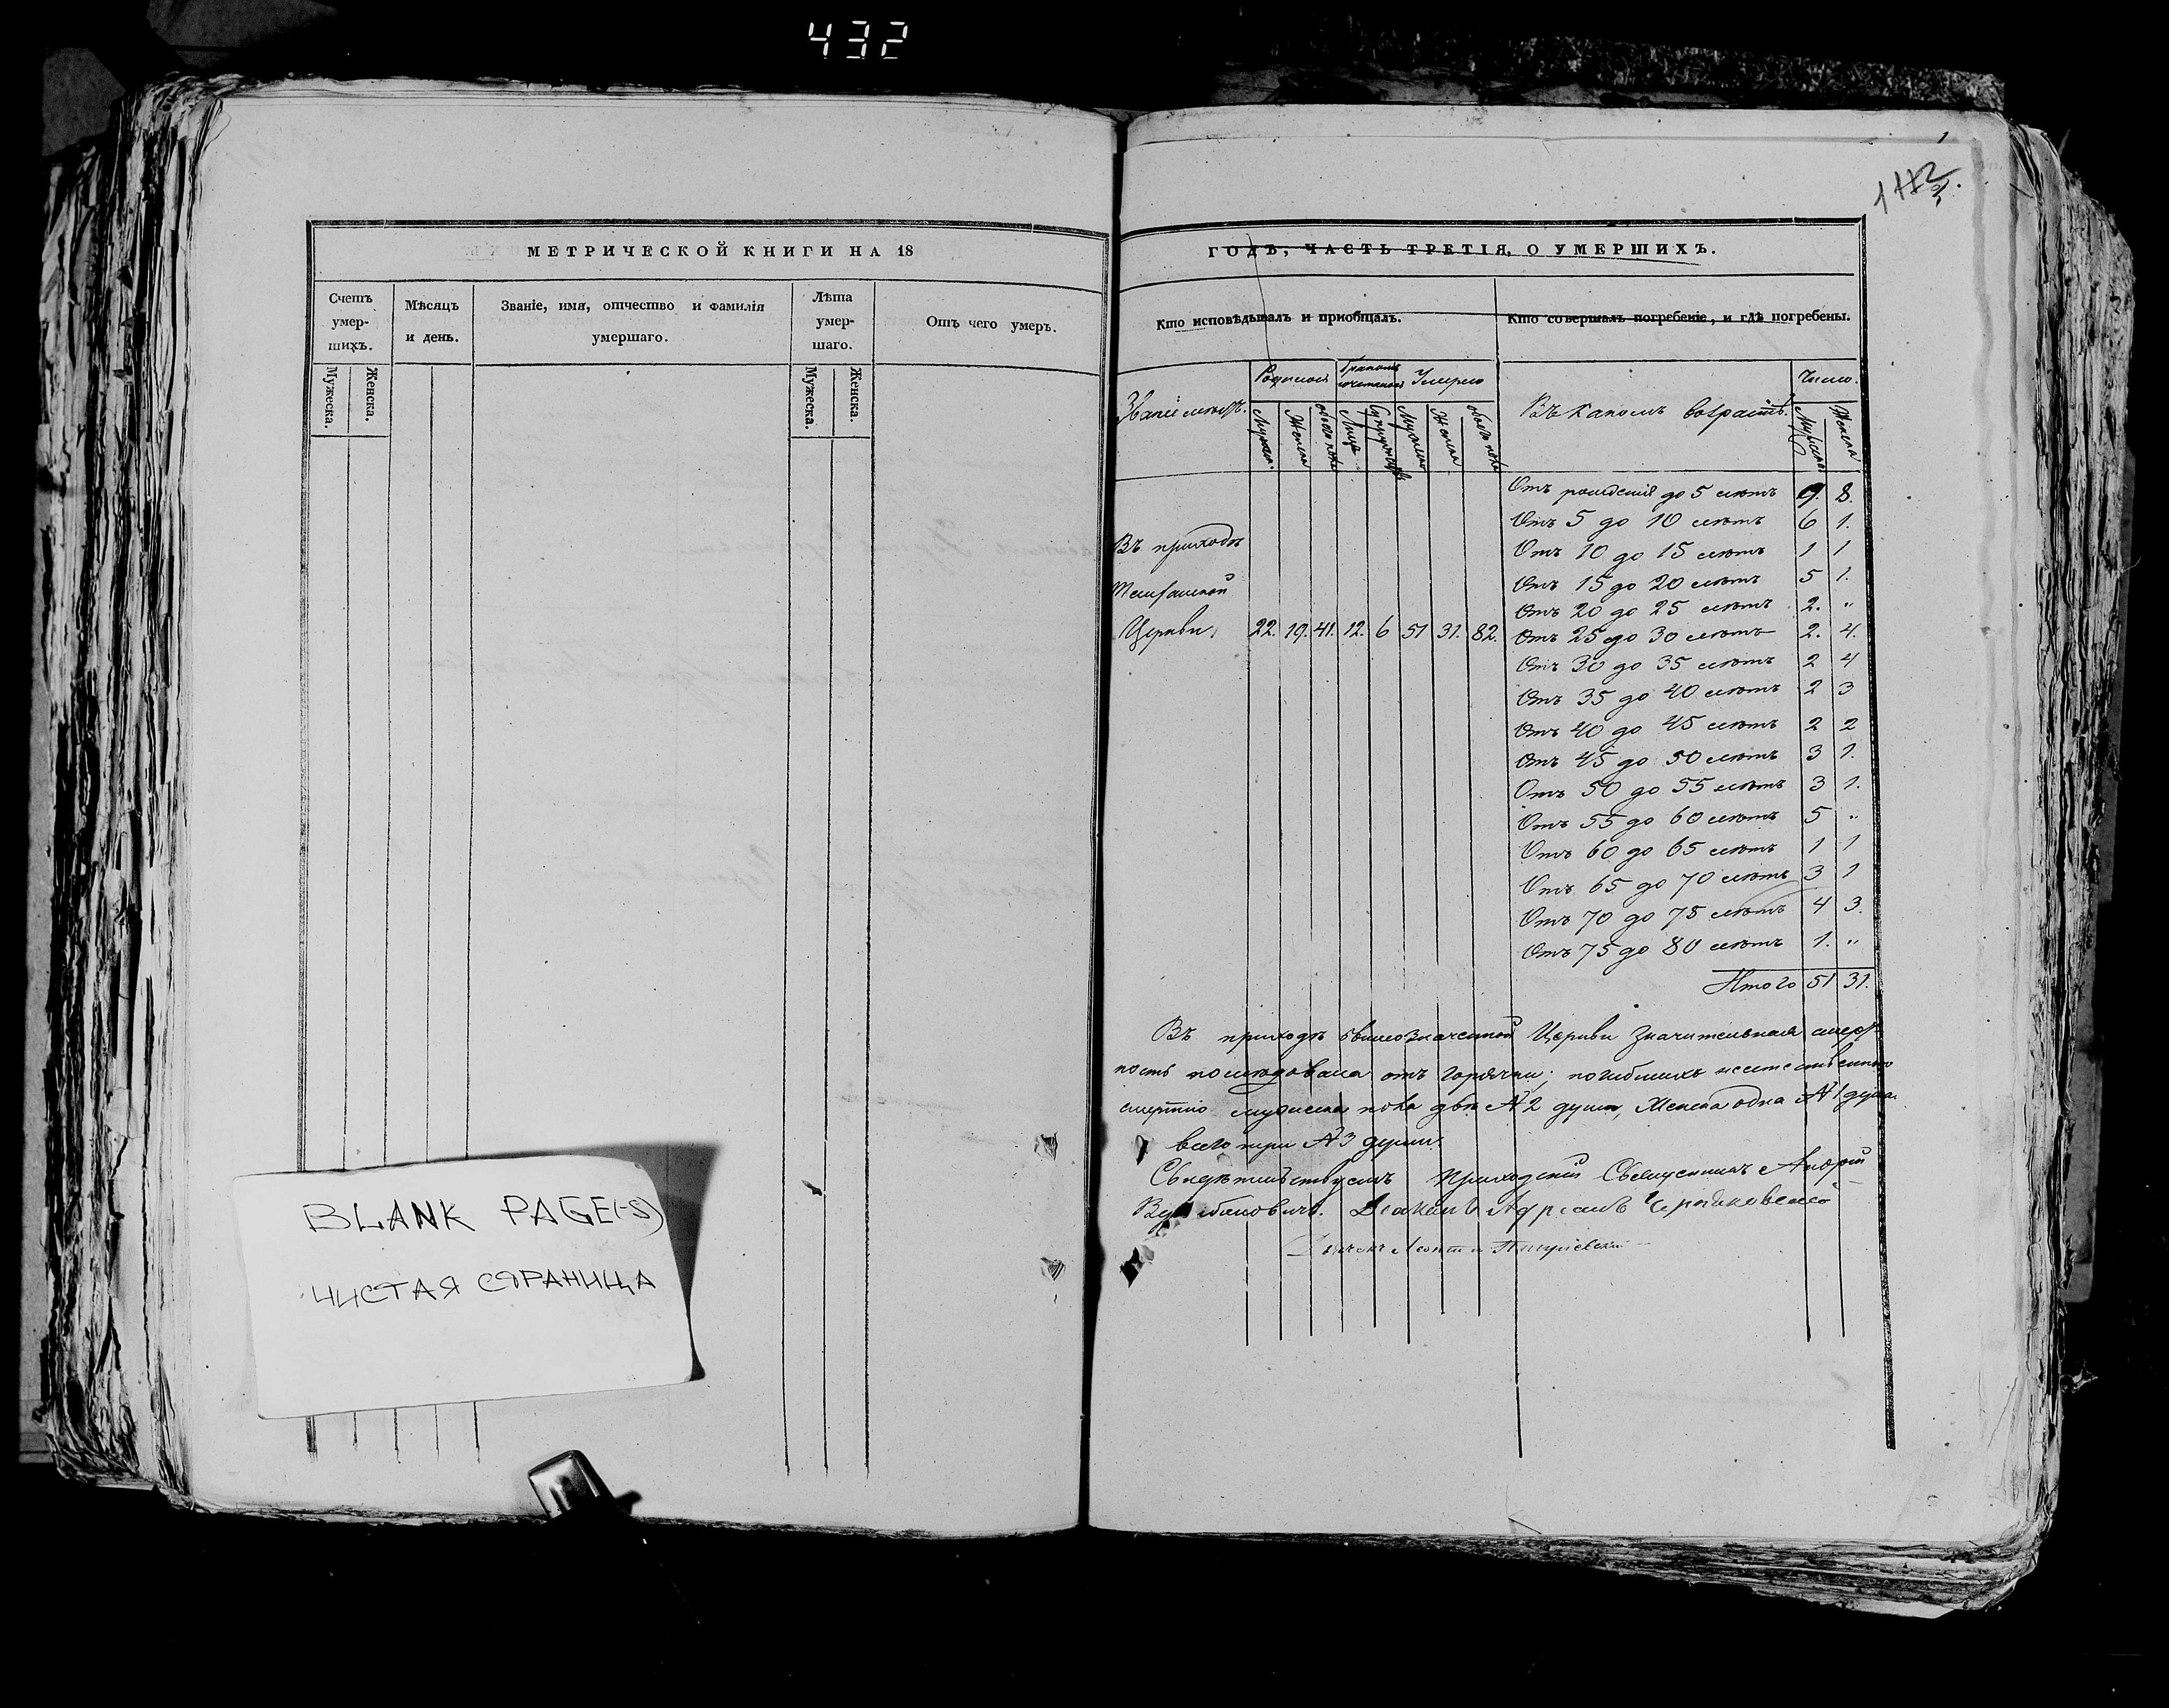 432
МЕТРИЧЕСКОЙ КНИГИ НА 18
Счетъ умер-шихъ.
Мужеска.
Женска.
Мѣсяцъ и день.
Званіе, имя, отчество и фамилія умершаго.
Лѣта умер-шаго.
Мужеска.
Женска.
Отъ чего умеръ.
BLANK PAGE(-S)
ЧИСТАЯ СТРАНИЦА
ГОДЪ, ЧАСТЬ ТРЕТІЯ, О УМЕРШИХЪ.
Кто исповѣдывалъ и пріобщалъ.
Кто совершалъ погребеніе, и гдѣ погребены.
Родилося
Умерло
Въ какомъ возрастѣ.
Число.
Въ приходѣ
Церкви. 22. 19. 41. 12. 6 51 31. 82.
Отъ рожденія до 5 лѣтъ 9. 8.
Отъ 5 до 10 лѣтъ 6 1.
Отъ 10 до 15 лѣтъ 1 1
Отъ 15 до 20 лѣтъ 5 1.
Отъ 20 до 25 лѣтъ 2. "
Отъ 25 до 30 лѣтъ 2. 4.
Отъ 30 до 35 лѣтъ 2 4
Отъ 35 до 40 лѣтъ 2 3
Отъ 40 до 45 лѣтъ 2 2
Отъ 45 до 50 лѣтъ 3 1.
Отъ 50 до 55 лѣтъ 3 1.
Отъ 55 до 60 лѣтъ 5 "
Отъ 60 до 65 лѣтъ 1 1
Отъ 65 до 70 лѣтъ 3 1
Отъ 70 до 75 лѣтъ 4 3.
Отъ 75 до 80 лѣтъ 1. "
Итого 51 31.
Въ приходѣ вышеозначенной Церкви значительная смерт-
ность послѣдовала отъ горячки; погибшихъ неестественною
смертію мужеска пола двѣ 2 души, Женска одна 1 душа.
всего три 3 души.
Свидѣтельствуемъ Приходскій Священникъ Андрей